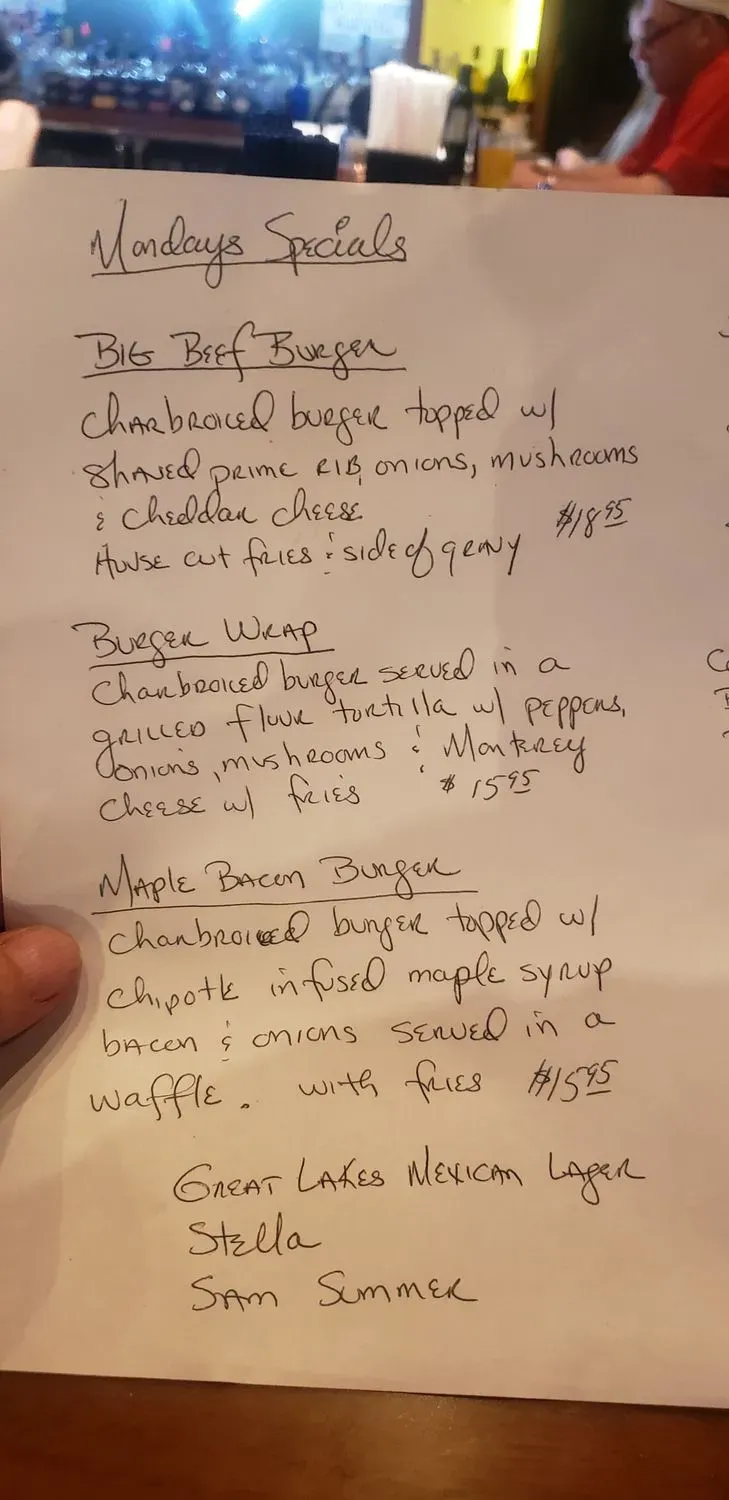 Mondays Specials
Big Beef Burger
Charbroiled burger topped w/
shaved prime rib, onions, mushrooms
& cheddar cheese
$18.95
House cut fries & side of gravy
Burger Wrap
Charbroiled burger served in a
grilled flour tortilla w/ peppers,
onions, mushrooms & Monterey
cheese w/ fries $15.95
Maple Bacon Burger
Charbroiled burger topped w/
chipotle infused maple syrup
bacon & onions served in a
waffle. with fries $15.95
Great Lakes Mexican Lager
Stella
Sam Summer